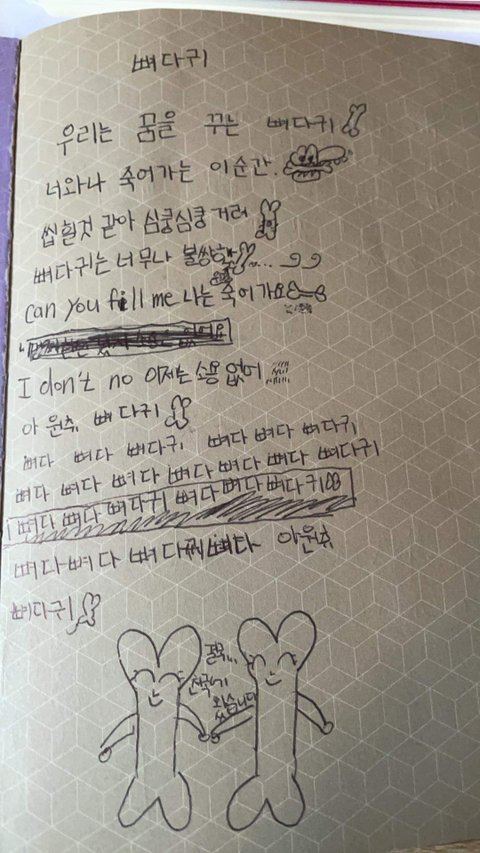 뼈다귀
우리는 꿈을 꾸는 뼈다귀
너와나 죽어가는 이순간.
씹힌것 같아 심쿵심쿵거려
뼈다귀는 너무나 불쌍해 ....
can you fill me 나는 죽어가요
I don't no 이제는 소용없어
아 원츄 뼈다귀
뼈다 뼈다 뼈다귀 뼈다 뼈다 뼈다귀
뼈다 뼈다 뼈다 뼈다 뼈다 뼈다 뼈다귀
뼈다 뼈다 뼈다귀 뼈다 뼈다 뼈다귀
뼈다 뼈다 뼈다 뼈다 아 원츄
뼈다귀
왔습니다